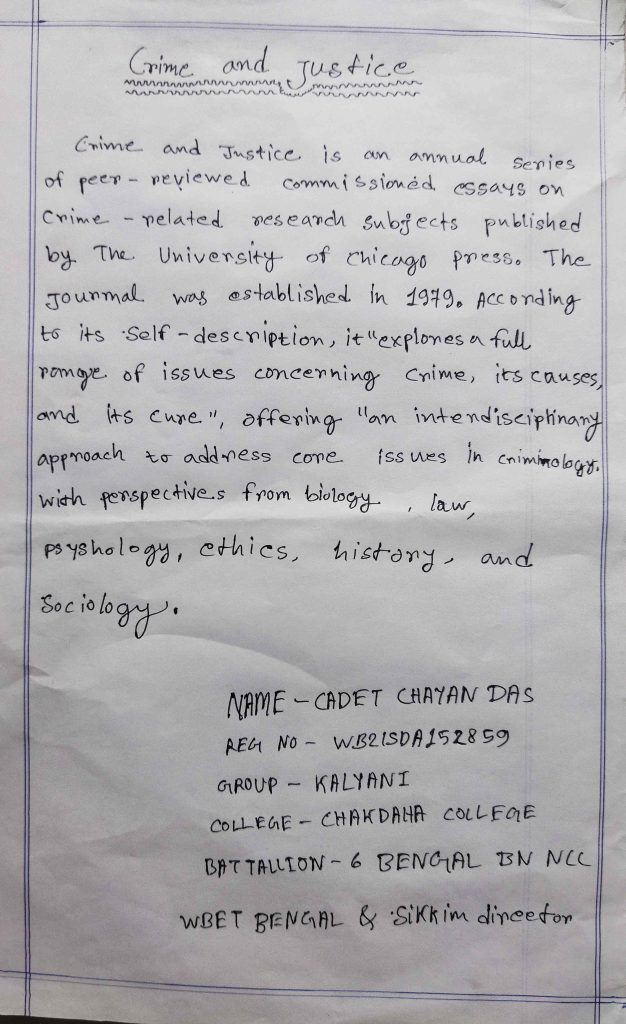 Crime and Justice
Crime and Justice is an annual series
of peer - reviewed commissioned essays on
Crime - related research subjects published
by The University of Chicago press. The
Journal was established in 1979. According
to its self - description, it "explores a full
range of issues concerning crime, its causes,
and its cure", offering "an interdisciplinary
approach to address core issues in criminology.
with perspectives from biology, law,
psyshology, ethics, history, and
Sociology.
NAME - CADET CHAYAN DAS
REG NO - WB21SDA152859
GROUP - KALYANI
COLLEGE - CHAKDAHA COLLEGE
BATTALLION - 6 BENGAL BN NCC
WBET BENGAL & Sikkim director